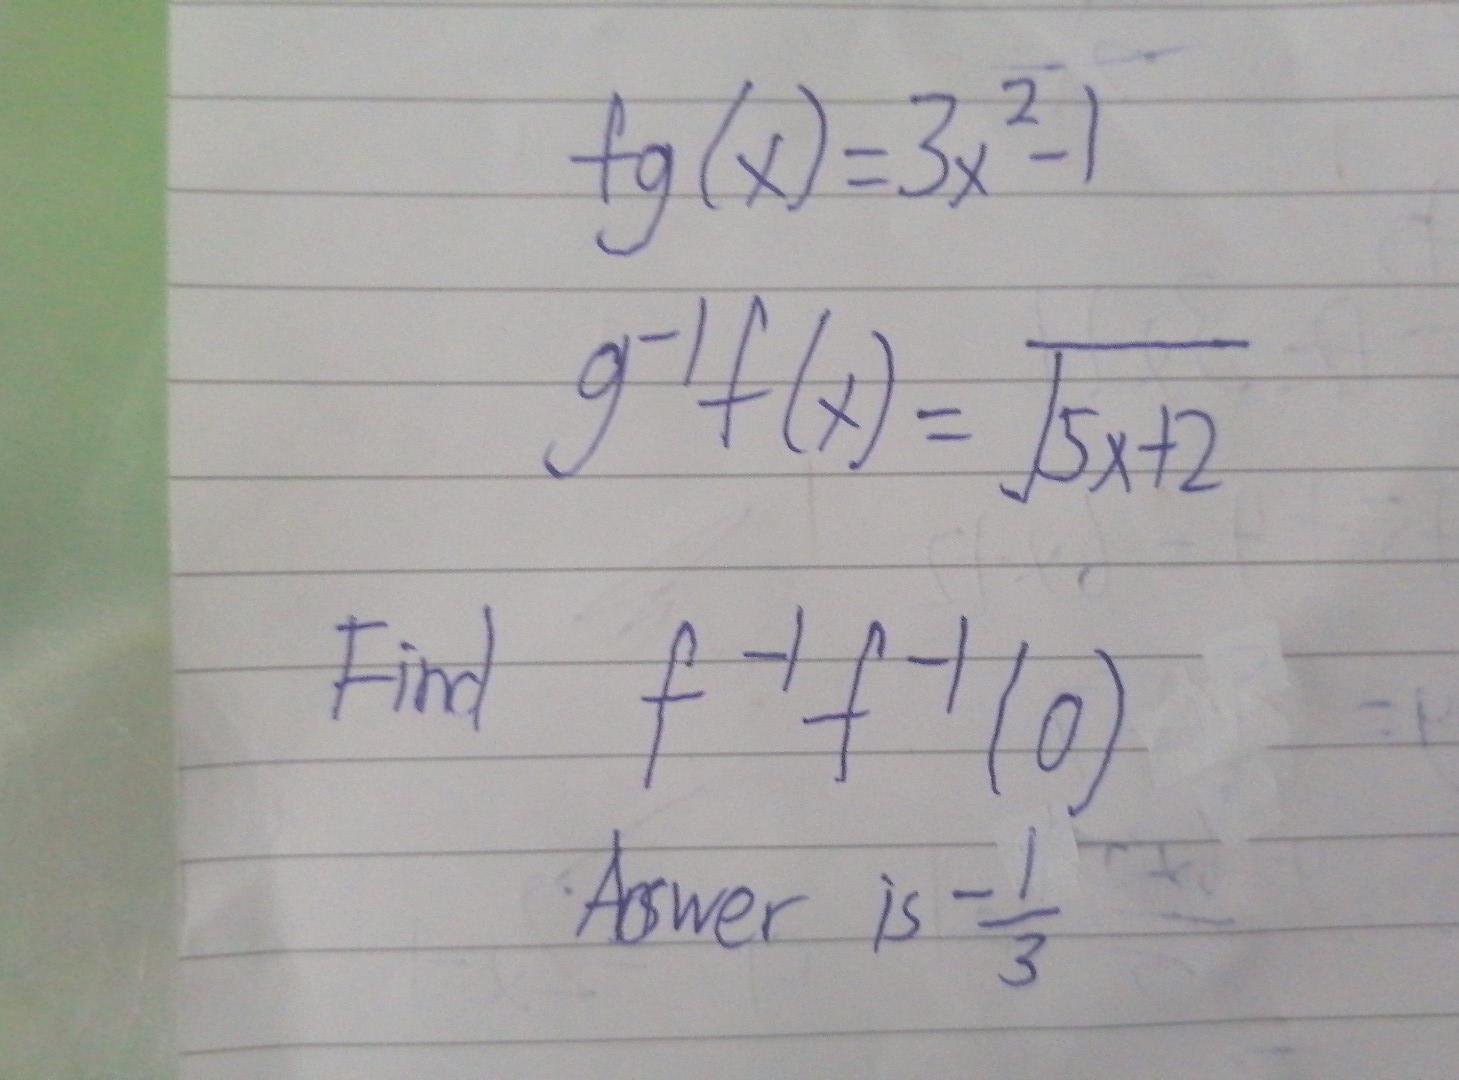 fg(x)=3x²-1
g⁻¹f(x) = √5x+2
Find f⁻¹f⁻¹(0)
Answer is -1/3